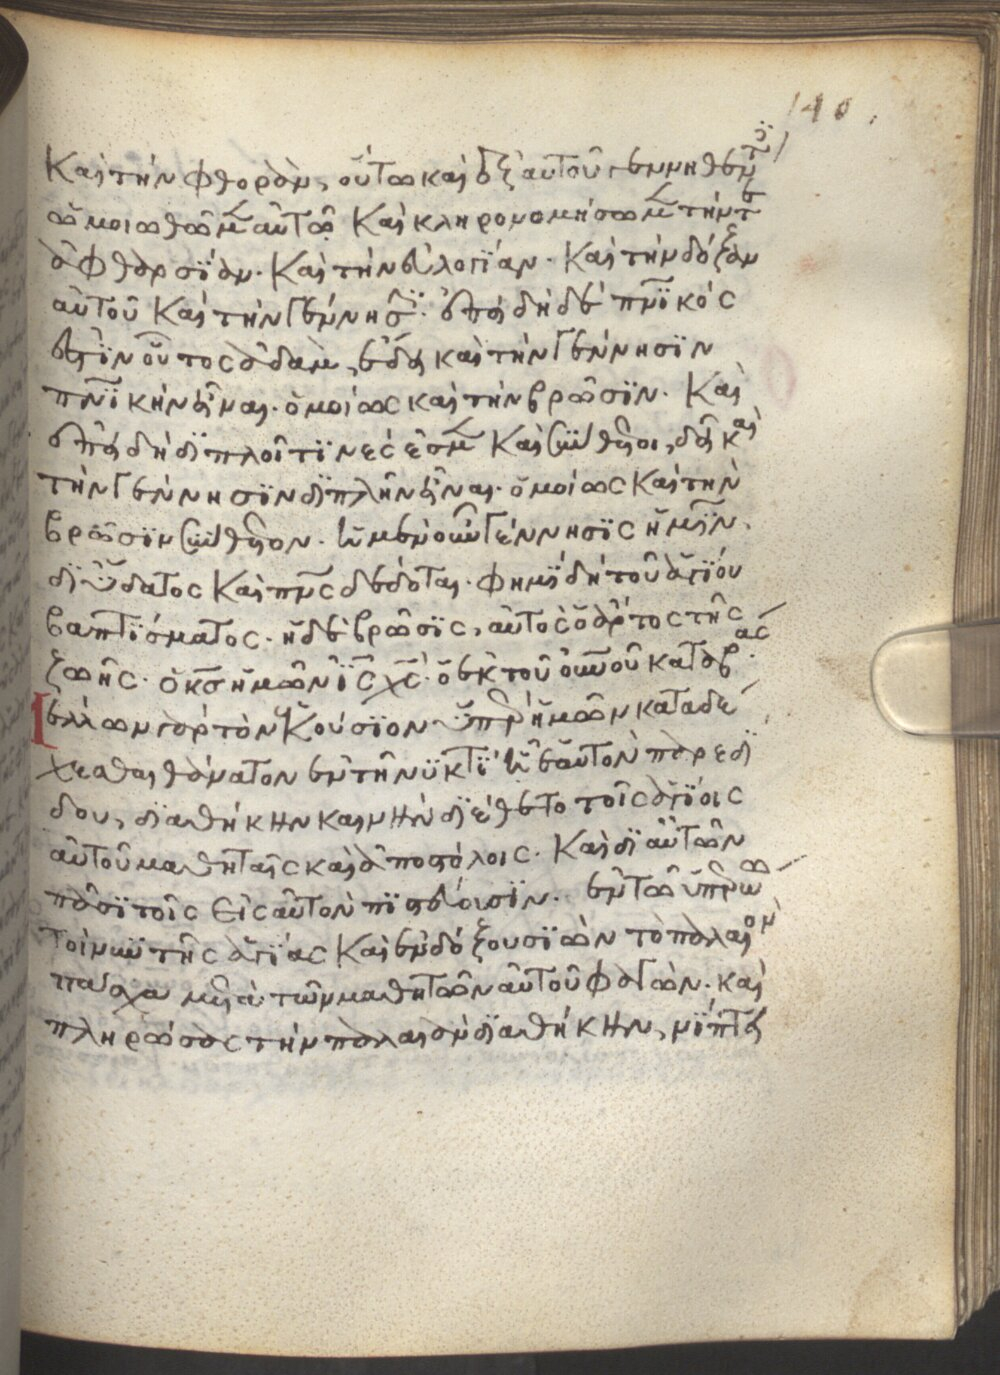 140
Καὶ τὴν φθορὰν, οὕτω καὶ ἐξ αὐτοῦ γεννηθέντες
ὁμοιωθῶμεν αὐτῶ Καὶ κληρονομήσωμεν τήν τε
ἀφθαρσΐαν. Καὶ τὴν εὐλογΐαν. Καὶ τὴν δόξαν
αὐτοῦ Καὶ τὴν γέννησιν. ἐπειδὴ δὲ πνϊκός
ἐστϊν οὗτος ὁ ἀδὰμ, ἔδει καὶ τὴν γέννησϊν
πνϊκὴν εἶναι. ὁμοίως καὶ τὴν βρῶσϊν. Καὶ
ἐπειδὴ δϊπλοῖ τϊνές ἐσμεν Καὶ σύνθετοι, δεῖ καὶ
τὴν γέννησϊν δϊπλῆν εἶναι. ὁμοίως Καὶ τὴν
βρῶσϊν σύνθετον. ἡ μὲν οὖν γέννησϊς ἡμῖν.
δϊ ὕδατος Καὶ πνς δέδοται. φημῒ δὴ τοῦ ἁγΐου
βαπτΐσματος. ἡ δὲ βρῶσϊς, αὐτὸς ὁ ἄρτος τῆς
ζωῆς. ὁ κς ἡμῶν ις χς. ὁ ἐκ τοῦ οὐνοῦ καταβάς.
Μέλλων γὰρ τὸν ἑκούσϊον ὑπὲρ ἡμῶν καταδέ
χεσθαι θάνατον ἐν τῆ νϋκτῒ ἧ ἑαὐτὸν παρεδΐ
δου, δϊαθήκην καινὴν δϊέθετο τοῖς ἁγΐοις
αὐτοῦ μαθηταῖς καὶ ἀποστόλοις. Καὶ δϊ αὐτῶν
πᾶσϊ τοῖς εἰς αὐτὸν πϊστεύουσϊν. ἐν τῶ ὑπερώω
τοίνυν τῆς ἁγΐας Καὶ ἐνδόξου σϊὼν τὸ παλαιὸν
πάσχα μετὰ τῶν μαθητῶν αὐτοῦ φαγὼν. καὶ
πληρώσας τὴν παλαιὰν δϊαθήκην, νΐπτει